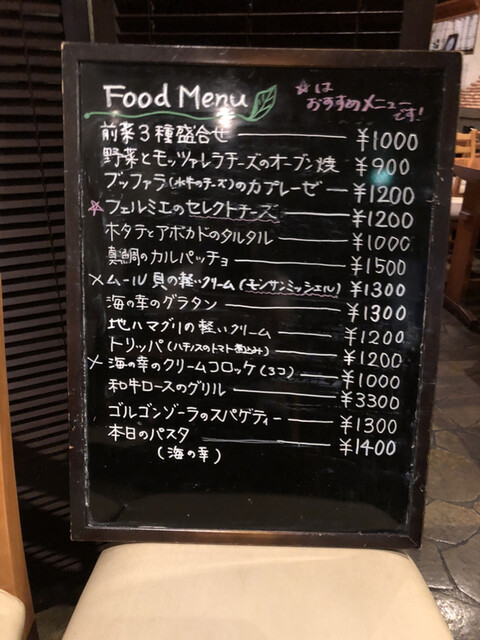 Food Menu
☆は
おすすめメニュー
です!
前菜3種盛合せ ¥1000
野菜とモッツァレラチーズのオーブン焼 ¥900
ブッファラ(水牛のチーズ)のカプレーゼ ¥1200
☆フェルミエのセレクトチーズ ¥1200
ホタテとアボカドのタルタル ¥1000
真鯛のカルパッチョ ¥1500
×ムール貝の軽いクリーム(モンサンミッシェル) ¥1300
海の幸のグラタン ¥1300
地ハマグリの軽いクリーム ¥1200
トリッパ(ハチノスのトマト煮込み) ¥1200
×海の幸のクリームコロッケ(3コ) ¥1000
和牛ロースのグリル ¥3300
ゴルゴンゾーラのスパゲティー ¥1300
本日のパスタ ¥1400
(海の幸)